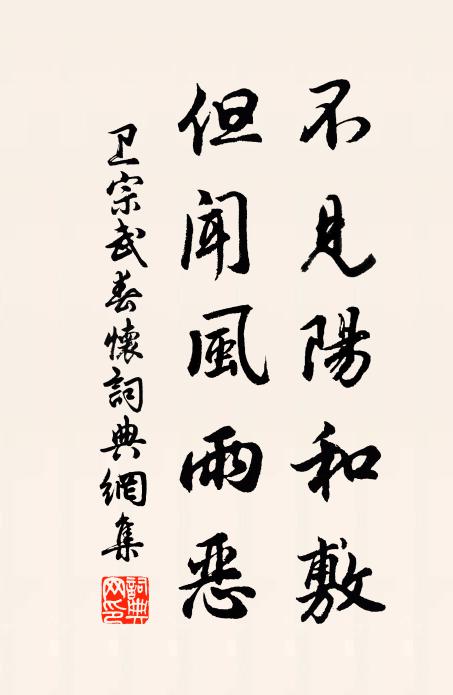 不見陽和敷
但聞風雨惡
卫宗武春懷詞典網集
詞典网印